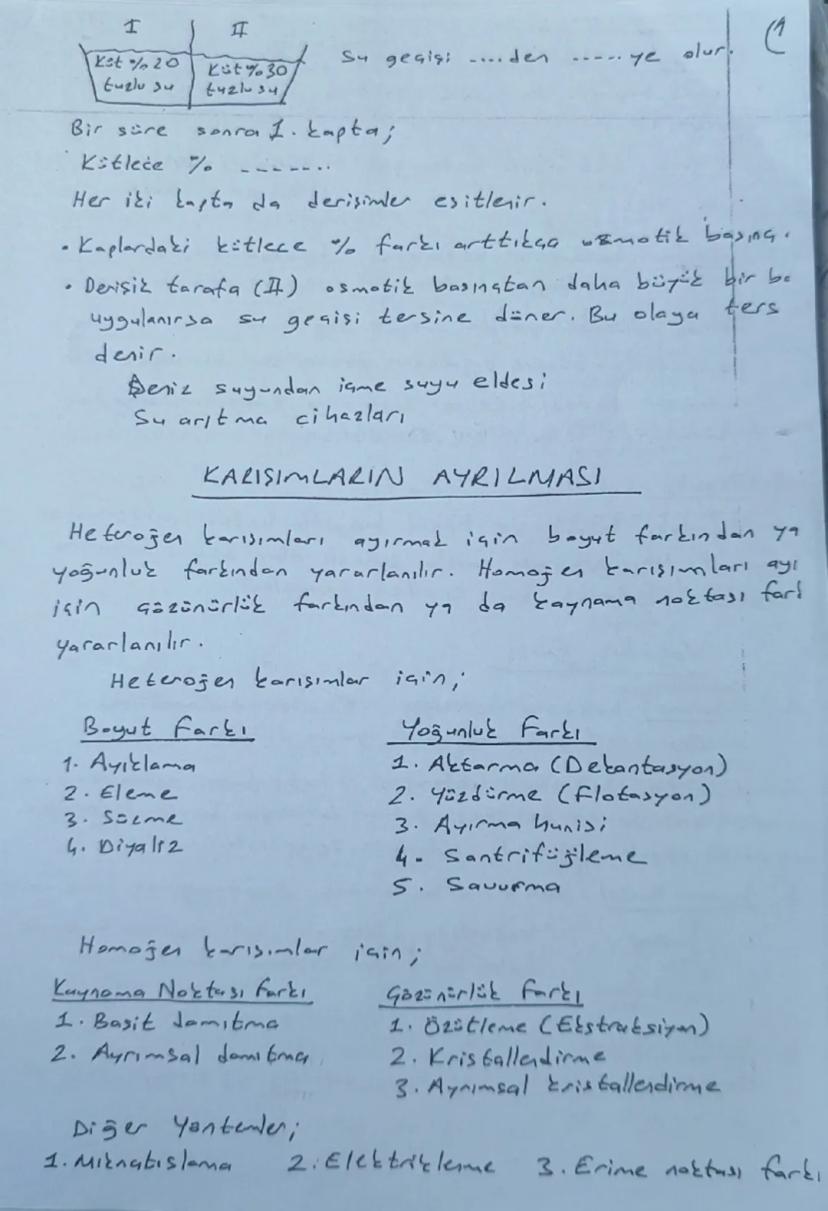 I II
Küt %20 tuzlu su
Küt %30 tuzlu su
Su geçişi ....den .....ye olur.
Bir süre sonra I. kapta;
Kütlece % .......
Her iki kapta da derişimler eşitlenir.
• Kaplardaki kütlece % farkı arttıkça ozmotik basınç.
• Derişik tarafa (II) osmotik basınçtan daha büyük bir ba
uygulanırsa su geçişi tersine döner. Bu olaya ters
denir.
Deniz suyundan içme suyu eldesi
Su arıtma cihazları
KARIŞIMLARIN AYRILMASI
Heterojen karışımları ayırmak için boyut farkından ya
yoğunluk farkından yararlanılır. Homojen karışımları ayı
için çözünürlük farkından ya da kaynama noktası fark
yararlanılır.
Heterojen karışımlar için;
Boyut farkı
1. Ayıklama
2. Eleme
3. Süzme
4. Diyaliz
Yoğunluk Farkı
1. Aktarma (Dekantasyon)
2. Yüzdürme (Flotasyon)
3. Ayırma hunisi
4. Santrifüjleme
5. Savurma
Homojen karışımlar için;
Kaynama Noktası farkı
1. Basit damıtma
2. Ayrımsal damıtma
Çözünürlük farkı
1. Özütleme (Ekstraksiyon)
2. Kristallendirme
3. Ayrımsal kristallendirme
Diğer Yöntemler;
1. Mıknatıslama 2. Elektriklenme 3. Erime noktası farkı